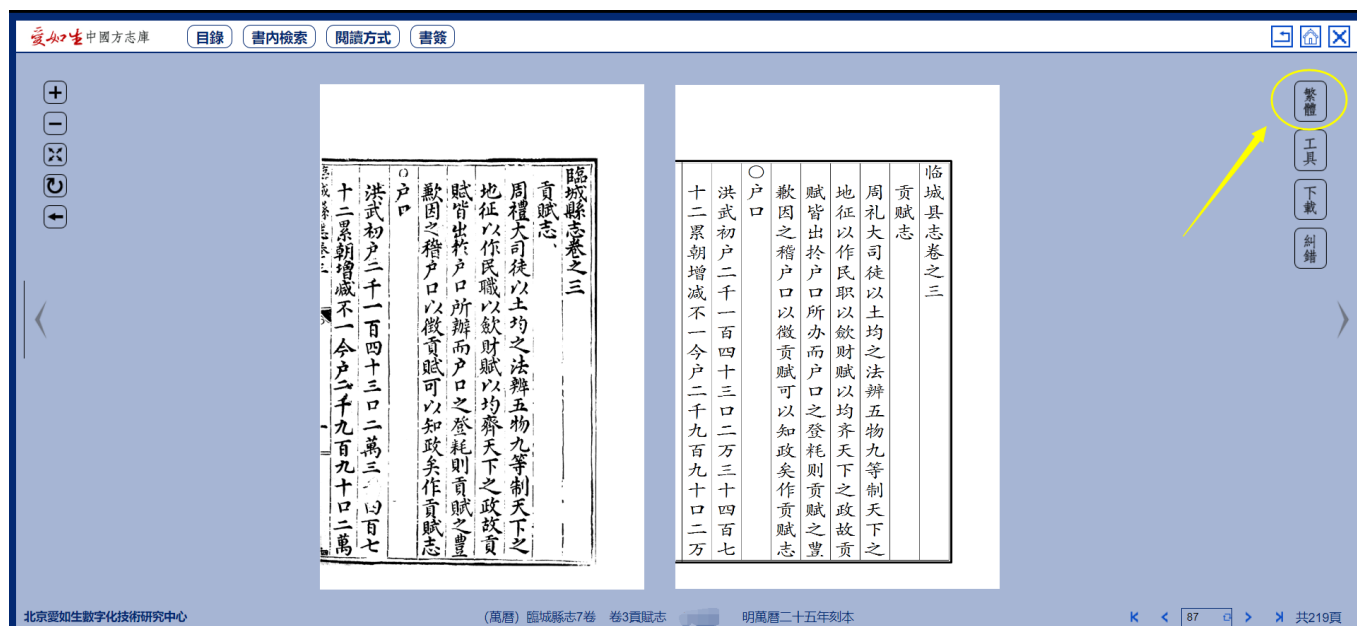 愛如生中國方志庫
目錄
書内檢索
閱讀方式
書簽
繁體
工具
下載
糾錯
臨城縣志卷之三
貢賦志
周禮大司徒以土均之法辨五物九等制天下之
地征以作民職以斂財賦以均齊天下之政故貢
賦皆出於户口所辦而户口之登耗則貢賦之豐
歉因之稽户口以徵貢賦可以知政矣作貢賦志
○户口
洪武初户二千一百四十三口二萬三十四百七
十二累朝增减不一今户二千九百九十口二萬
临城县志卷之三
贡赋志
周礼大司徒以土均之法辨五物九等制天下之
地征以作民职以歛财赋以均齐天下之政故贡
赋皆出扵户口所办而户口之登耗则贡赋之豊
歉因之稽户口以徴贡赋可以知政矣作贡赋志
○户口
洪武初户二千一百四十三口二万三十四百七
十二累朝增减不一今户二千九百九十口二万
北京愛如生數字化技術研究中心
(萬曆) 臨城縣志7卷 卷3貢賦志 明萬曆二十五年刻本
87
共219頁